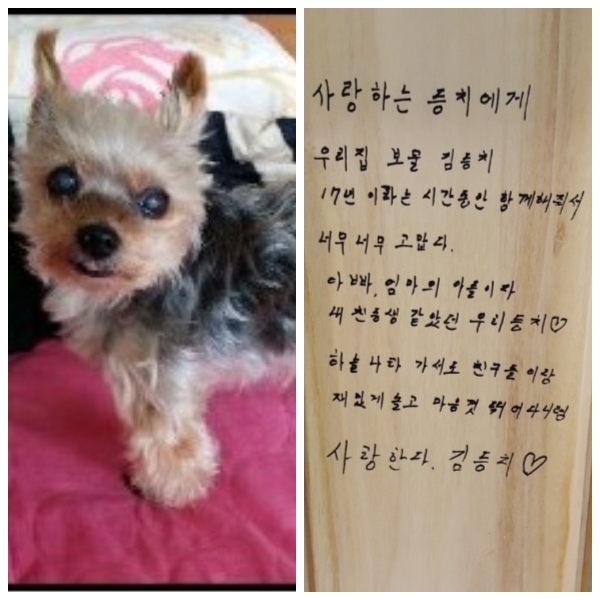 사랑하는 등치에게
우리집 보물 김등치
17년 이라는 시간동안 함께해줘서
너무너무 고맙다.
아빠, 엄마의 아들이자
내 친동생 같았던 우리등치♡
하늘나라 가서도 친구들이랑
재밌게 놀고 마음껏 뛰어다니렴
사랑한다. 김등치♡